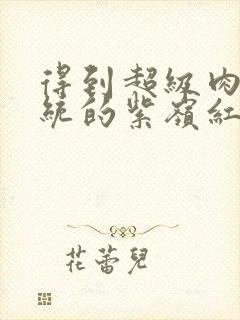 得到超級肉
統的紫嶺紅
花蕾兒